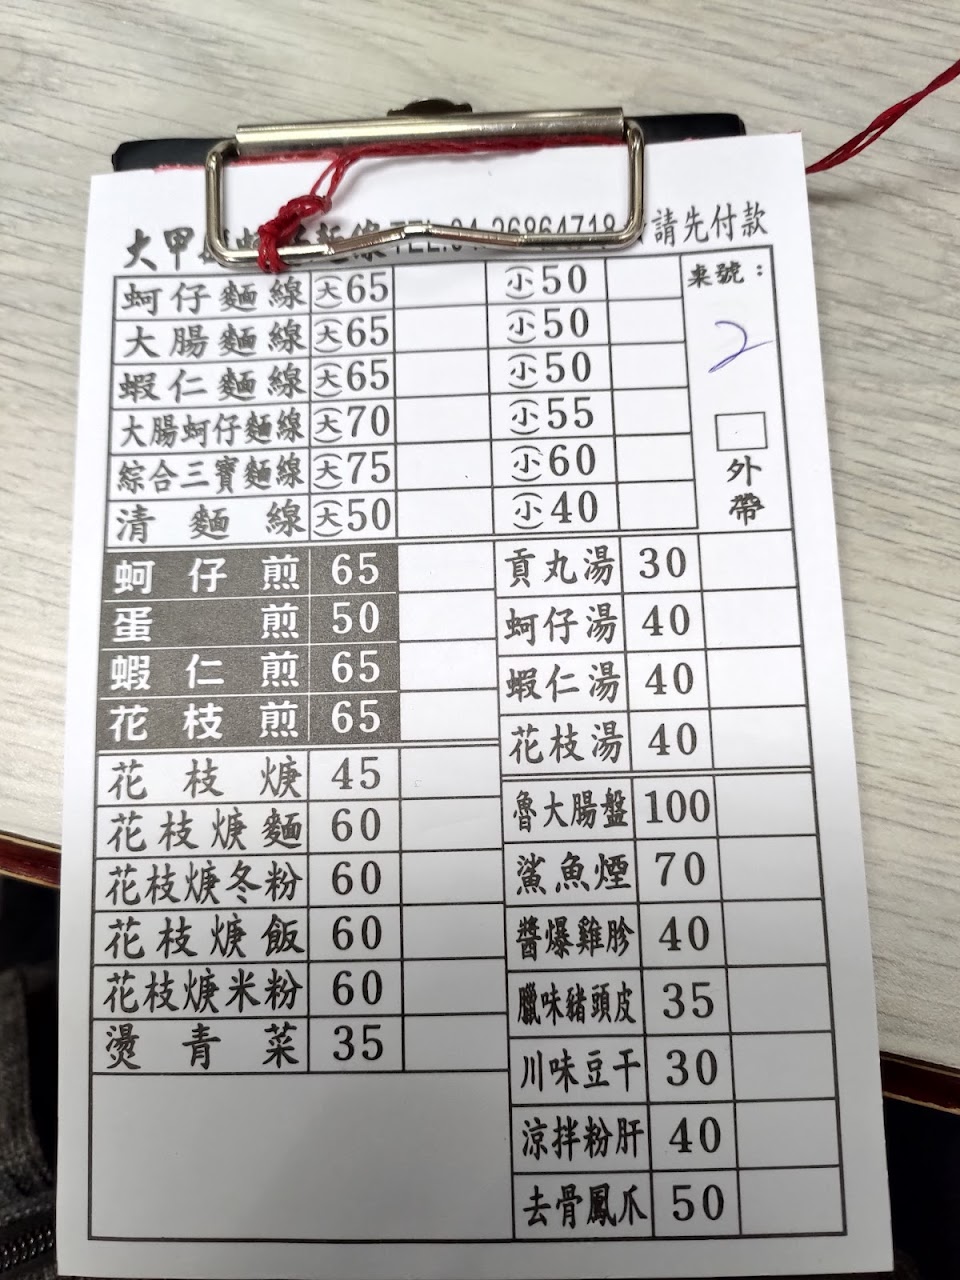 大甲 蚵仔麵線 TEL:04-26864718 請先付款
桌號： 2
外帶
蚵仔麵線 (大)65 (小)50
大腸麵線 (大)65 (小)50
蝦仁麵線 (大)65 (小)50
大腸蚵仔麵線 (大)70 (小)55
綜合三寶麵線 (大)75 (小)60
清麵線 (大)50 (小)40
蚵仔煎 65
蛋煎 50
蝦仁煎 65
花枝煎 65
花枝焿 45
花枝焿麵 60
花枝焿冬粉 60
花枝焿飯 60
花枝焿米粉 60
燙青菜 35
貢丸湯 30
蚵仔湯 40
蝦仁湯 40
花枝湯 40
魯大腸盤 100
鯊魚煙 70
醬爆雞胗 40
臘味豬頭皮 35
川味豆干 30
涼拌粉肝 40
去骨鳳爪 50